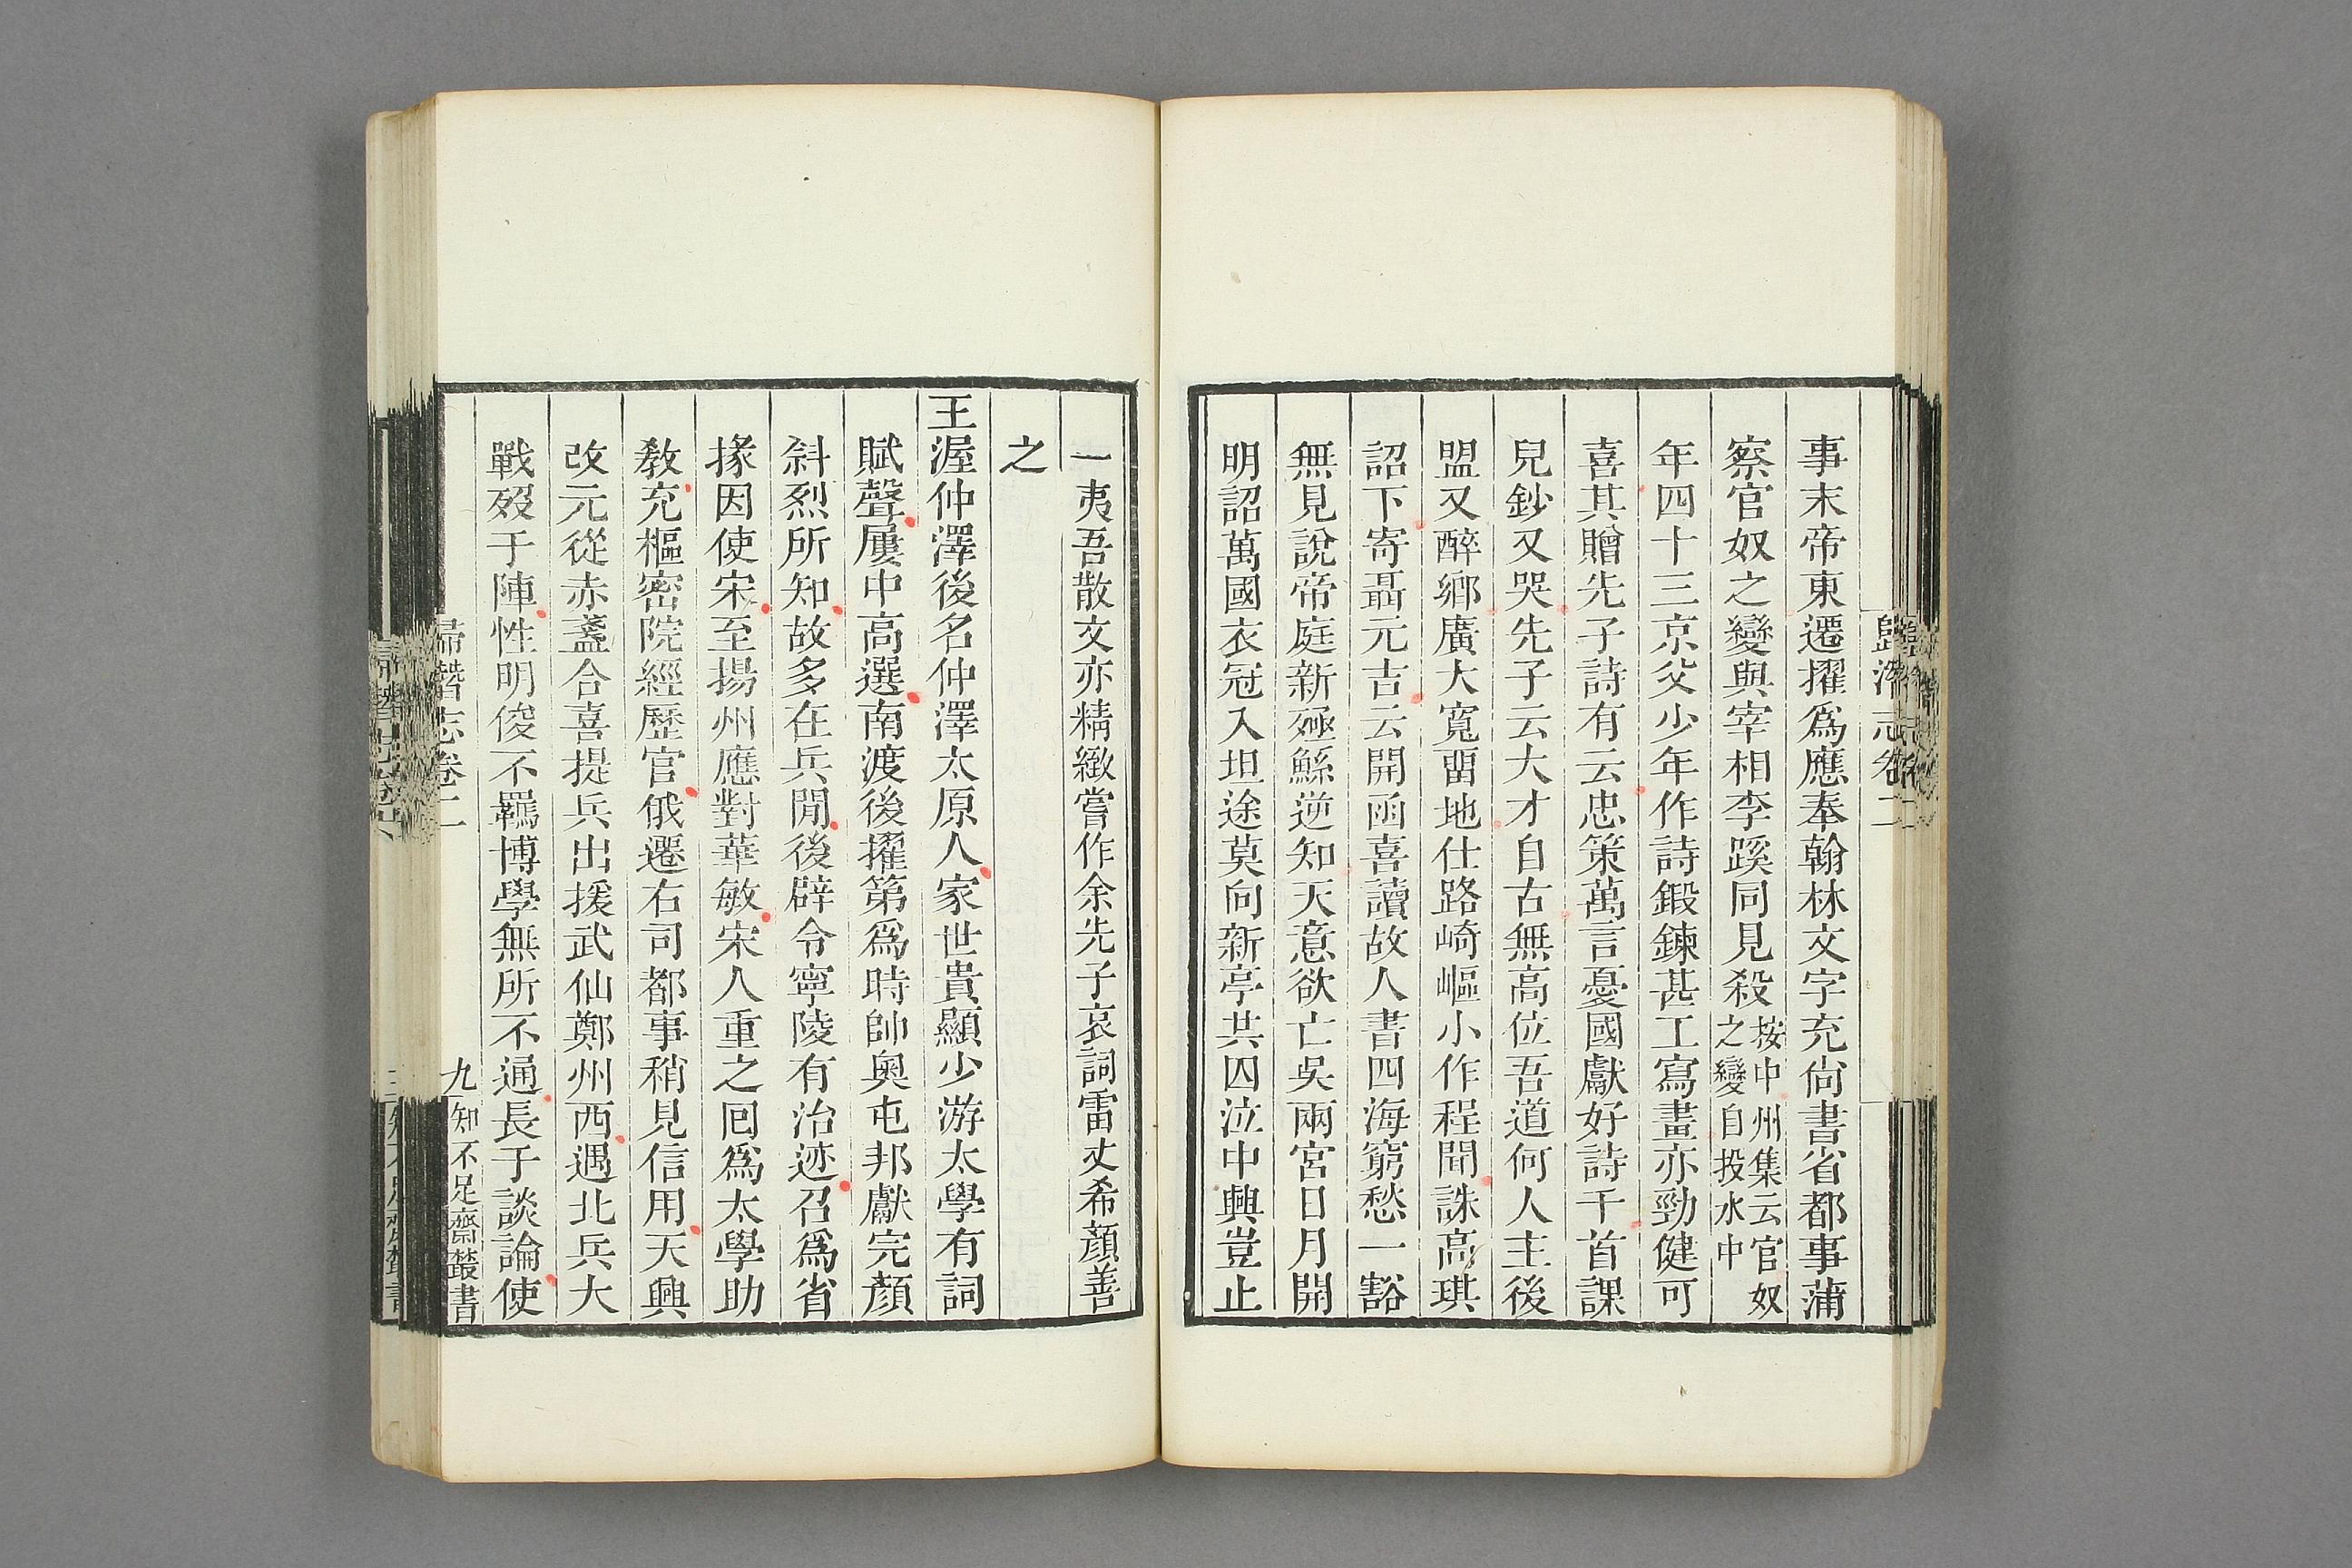 歸潛志卷二
事末帝東遷擢爲應奉翰林文字充尙書省都事蒲
察官奴之變與宰相李蹊同見殺按中州集云官奴之變自投水中
年四十三京父少年作詩鍛鍊甚工寫畫亦勁健可
喜其贈先子詩有云忠策萬言憂國獻好詩千首課
兒鈔又哭先子云大才自古無高位吾道何人主後
盟又醉鄉廣大寬留地仕路崎嶇小作程聞誅高琪
詔下寄聶元吉云開函喜讀故人書四海窮愁一豁
無見說帝庭新殛鯀逆知天意欲亡吳兩宮日月開
明詔萬國衣冠入坦途莫向新亭共囚泣中興豈止
一夷吾散文亦精緻嘗作余先子哀詞雷丈希顏善
之
王渥仲澤後名仲澤太原人家世貴顯少游太學有詞
賦聲屢中高選南渡後擢第爲時帥奧屯邦獻完顏
斜烈所知故多在兵閒後辟令寧陵有治迹召爲省
掾因使宋至揚州應對華敏宋人重之回爲太學助
教充樞密院經歷官俄遷右司都事稍見信用天興
改元從赤盞合喜提兵出援武仙鄭州西遇北兵大
戰歿于陣性明俊不羈博學無所不通長于談論使
歸潛志卷二 九 知不足齋叢書